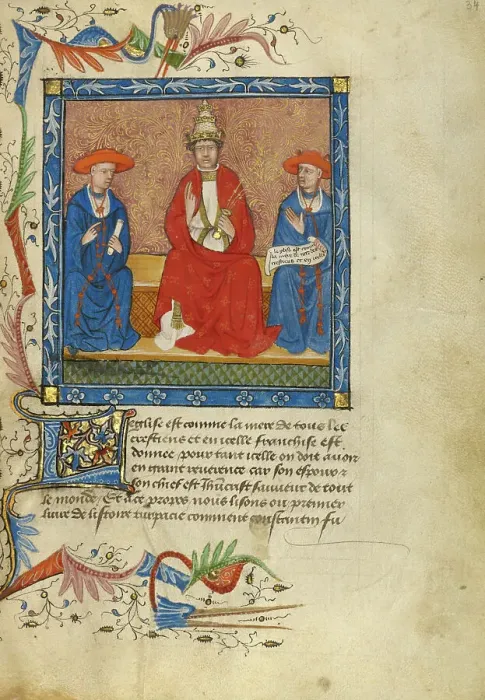 34
Leglise est comme
la mere de
crestiens et en
Leglise est comme la mere de tous les
crestiens et en icelle franchise est
donnee pour tant icelle on doit auoir
en grant reuerence car son espoux
son chief est Ihucrist sauueur de tout
le monde / Et a ce propos nous lisons ou premier
liure de listoire tripartie comment constantin fu